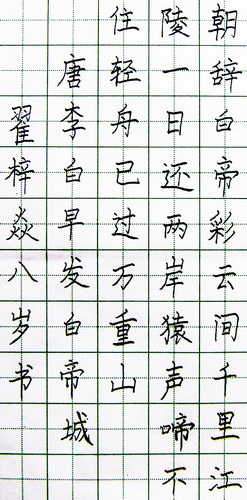 朝辞白帝彩云间千里江
陵一日还两岸猿声啼不
住轻舟已过万重山
唐李白早发白帝城
翟梓焱八岁书